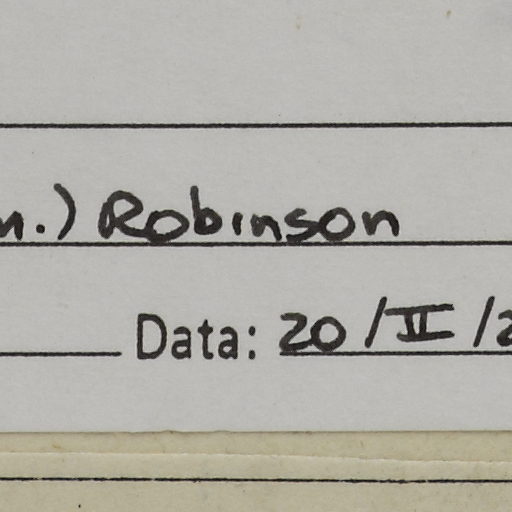 n.) Robinson
Data: 20/II/2